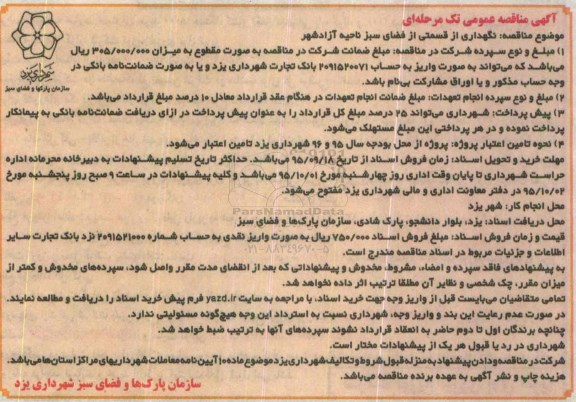 آگهی مناقصه عمومی تک مرحله‌ای
موضوع مناقصه: نگهداری از قسمتی از فضای سبز ناحیه آزادشهر
۱) مبلغ و نوع سپرده شرکت در مناقصه: مبلغ ضمانت شرکت در مناقصه به صورت مقطوع به میزان ۳۰۵/۰۰۰/۰۰۰ ریال
می‌باشد که می‌تواند به صورت واریز به حساب ۲۰۹۱۵۲۰۰۷۱ بانک تجارت شهرداری یزد و یا به صورت ضمانت‌نامه بانکی در
وجه حساب مذکور و یا اوراق مشارکت بی‌نام باشد.
۲) مبلغ و نوع سپرده انجام تعهدات: مبلغ ضمانت انجام تعهدات در هنگام عقد قرارداد معادل ۱۰ درصد مبلغ قرارداد می‌باشد.
۳) پیش پرداخت: شهرداری می‌تواند ۲۵ درصد مبلغ کل قرارداد را به عنوان پیش پرداخت در ازای دریافت ضمانت‌نامه بانکی به پیمانکار
پرداخت نموده و در هر پرداختی این مبلغ مستهلک می‌شود.
۴) نحوه تامین اعتبار پروژه: پروژه از محل بودجه سال ۹۵ و ۹۶ شهرداری یزد تامین اعتبار می‌شود.
مهلت خرید و تحویل اسناد: زمان فروش اسناد از تاریخ ۹۵/۰۹/۱۸ می‌باشد. حداکثر تاریخ تسلیم پیشنهادات به دبیرخانه محرمانه اداره
حراست شهرداری تا پایان وقت اداری روز چهارشنبه مورخ ۹۵/۱۰/۰۱ می‌باشد و کلیه پیشنهادات در ساعت ۹ صبح روز پنجشنبه مورخ
۹۵/۱۰/۰۲ در دفتر معاونت اداری و مالی شهرداری یزد مفتوح می‌شود.
محل انجام کار: شهر یزد
محل دریافت اسناد: یزد، بلوار دانشجو، پارک شادی، سازمان پارک‌ها و فضای سبز
قیمت و زمان فروش اسناد: مبلغ فروش اسناد ۷۵۰/۰۰۰ ریال به صورت واریز نقدی به حساب شماره ۲۰۹۱۵۲۱۰۰۰ نزد بانک تجارت سایر
اطلاعات و جزئیات مربوط در اسناد مناقصه مندرج است.
به پیشنهادهای فاقد سپرده و امضاء، مشروط، مخدوش و پیشنهاداتی که بعد از انقضای مدت مقرر واصل شود، سپرده‌های مخدوش و کمتر از
میزان مقرر، چک شخصی و نظایر آن مطلقا ترتیب اثر داده نخواهد شد.
تمامی متقاضیان می‌بایست قبل از واریز وجه جهت خرید اسناد، با مراجعه به سایت yazd.ir فرم پیش خرید اسناد را دریافت و مطالعه نمایند.
در صورت عدم رعایت این بند و واریز وجه، شهرداری نسبت به استرداد این وجه هیچ‌گونه مسئولیتی ندارد.
چنانچه برندگان اول تا دوم حاضر به انعقاد قرارداد نشوند سپرده‌های آنها به ترتیب ضبط خواهد شد.
شهرداری در رد یا قبول هر یک از پیشنهادات مختار است.
شرکت در مناقصه و دادن پیشنهاد به منزله قبول شروط و تکالیف شهرداری یزد موضوع ماده ۱۰ آیین نامه معاملات شهرداریهای مراکز استان ها می‌باشد.
هزینه چاپ و نشر آگهی به عهده برنده مناقصه می‌باشد.
سازمان پارک‌ها و فضای سبز شهرداری یزد
شهرداری یزد
سازمان پارکها و فضای سبز
ParsNamadData
۰۲۱-۸۸۳۴۹۶۷۰-۵